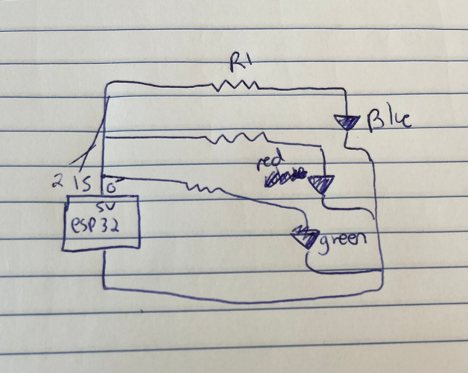 R1
Blue
red
2 15
5V
esp32
green